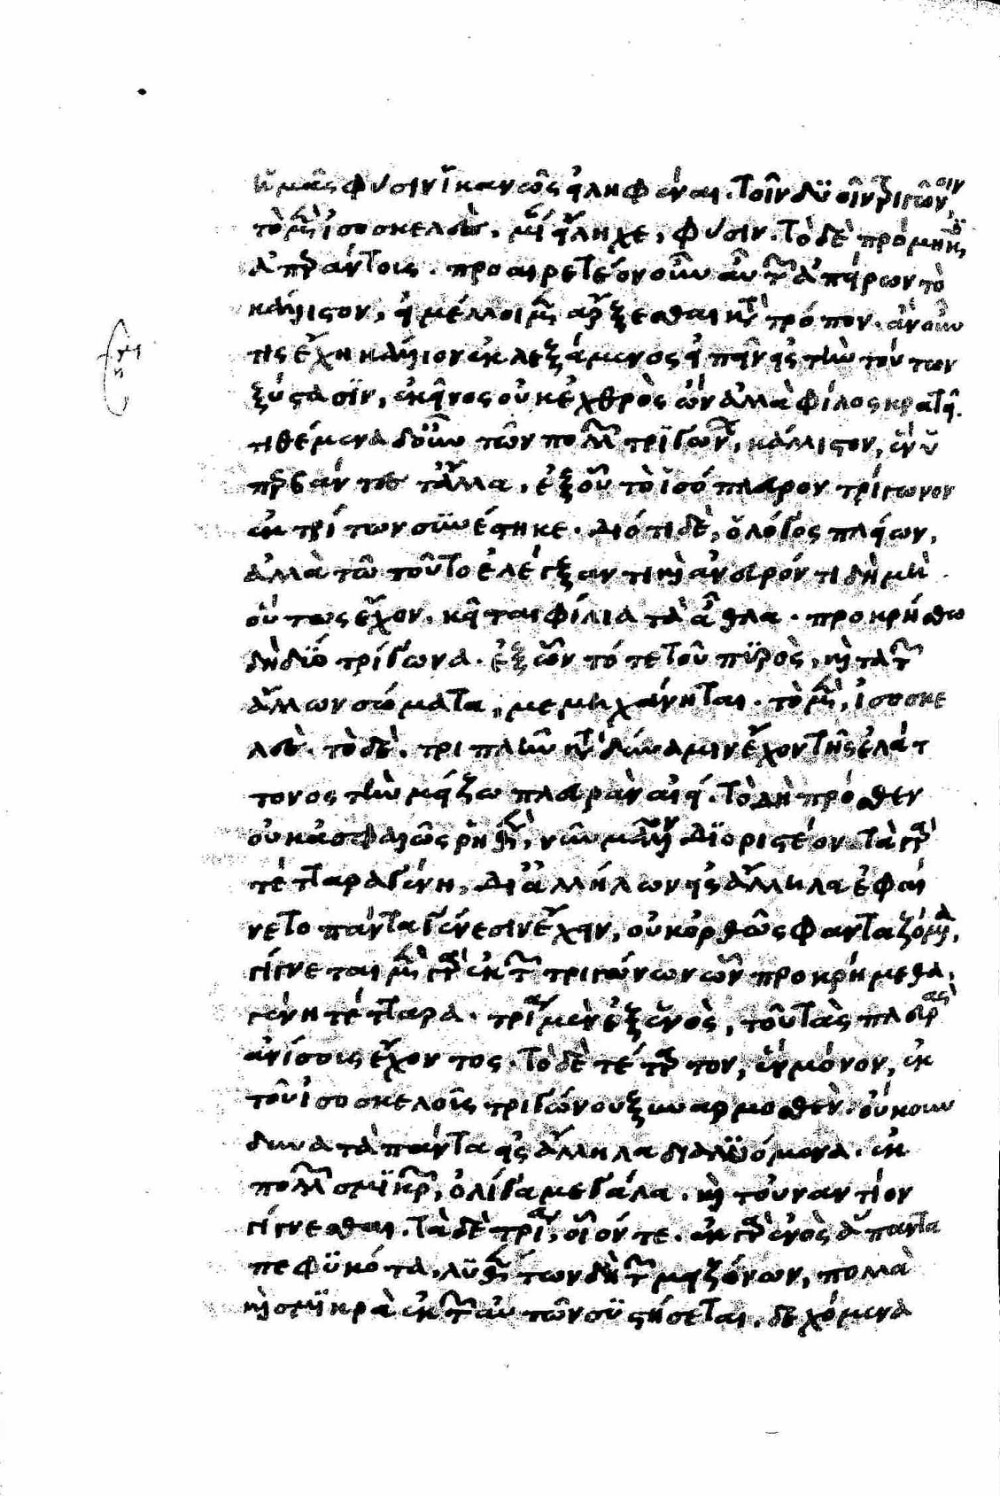 ἡμᾶς φύσιν ἱκανῶς εἰληφέναι. τοῖν δυοῖν τριγώνοιν,
τὸ μὲν ἰσοσκελὲς, μίαν εἴληχε, φύσιν. τὸ δὲ πρόμηκες
ἀπεράντους. προαιρετέον οὖν αὖ τῶν ἀπείρων τὸ
κάλλιστον, εἰ μέλλοιμεν ἄρξεσθαι κατὰ τρόπον. ἂν οὖν
τις ἔχῃ κάλλιον ἐκλεξάμενος εἰπεῖν εἰς τὴν τούτων
ξύστασϊν, ἐκεῖνος οὐκ ἐχθρὸς ὢν ἀλλὰ φίλος κρατεῖ.
τιθέμεθα δ' οὖν τῶν πολλῶν τριγώνων, κάλλιστον, ἓν ὑ
περβάντες τἄλλα, ἐξ οὗ τὸ ἰσόπλευρον τρίγωνον
ἐκ τρίτων συνέστηκε. διότι δὲ, ὁ λόγος πλείων,
ἀλλὰ τῶ τοῦτο ἐλέγξαντι καὶ ἀνευρόντι δὴ μὴ
οὕτως ἔχον. κεῖται φίλια τὰ ἆθλα. προῃρήσθω
δὴ δύο τρίγωνα. ἐξ ὧν τό τε τοῦ πυρὸς, καὶ τὰ τῶν
ἄλλων σώματα, μεμηχάνηται. τὸ μὲν, ἰσοσκε
λές. τὸ δὲ, τριπλῆν κατὰ δύναμιν ἔχον τῆς ἐλάτ
τονος τὴν μείζω πλευρὰν αἰεί. τὸ δὴ πρόσθεν
οὐκ ἀσφαλῶς ῥηθὲν, νῦν μᾶλλον διοριστέον. τὰ γὰρ
τέτταρα γένη, δι' ἀλλήλων εἰς ἄλληλα ἐφαί
νετο πάντα γένεσιν ἔχειν, οὐκ ὀρθῶς φανταζόμενα,
γίγνεται μὲν γὰρ ἐκ τῶν τριγώνων ὧν προῃρήμεθα,
γένη τέτταρα. τρία μὲν ἐξ ἑνὸς, τοῦ τὰς πλευρὰς
ἀνίσους ἔχοντος. τὸ δὲ τέταρτον, ἓν μόνον, ἐκ
τοῦ ἰσοσκελοῦς τριγώνου ξυναρμοσθέν. οὔκουν
δυνατὰ πάντα εἰς ἄλληλα διαλυόμενα. ἐκ
πολλῶν σμϊκρῶν, ὀλίγα μεγάλα. καὶ τοὐναντίον
γίγνεσθαι. τὰ δὲ τρία, οἷόν τε. ἐκ γὰρ ἑνὸς ἅπαντα
πεφϋκότα, λυθέντων δὴ τῶν μειζόνων, πολλὰ
καὶ σμϊκρὰ ἐκ τῶν αὐτῶν συστήσεται. δεχόμενα